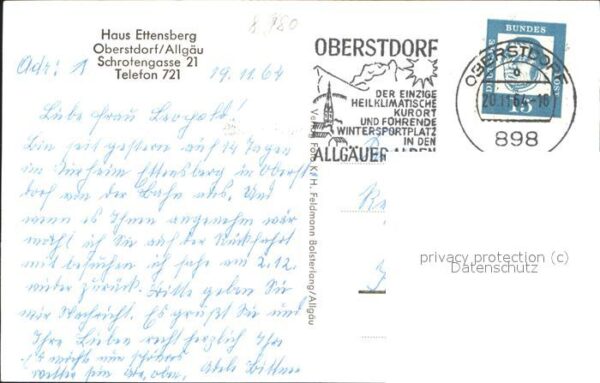 Haus Ettensberg
Oberstdorf/Allgäu
Schrotengasse 21
Telefon 721
8.980
Adr: 1
19.11.64
Liebe Frau Leopold!
Bin seit gestern auf 14 Tagen
im Kurheim Ettensberg in Oberst
dorf von der Bahn aus. Und
wenn es Ihnen angenehm wär
möcht ich Sie auf der Rückfahrt
mit besuchen ich fahre am 2.12.
wieder zurück. Bitte geben Sie
mir Nachricht. Es grüßt Sie und
Ihre Lieben recht herzlich Ihre
Adele Bittner
Verlag Foto K. H. Feldmann Bolsterlang/Allgäu
OBERSTDORF
DER EINZIGE
HEILKLIMATISCHE
KURORT
UND FÜHRENDE
WINTERSPORTPLATZ
IN DEN
ALLGÄUER ALPEN
OBERSTDORF
20.11.64-18
898
BUNDES
POST
15
privacy protection (c)
Datenschutz